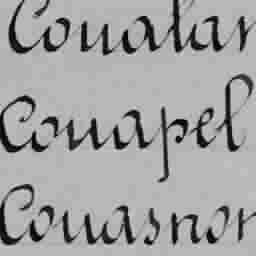 Coualan
Couapel
Couasnon